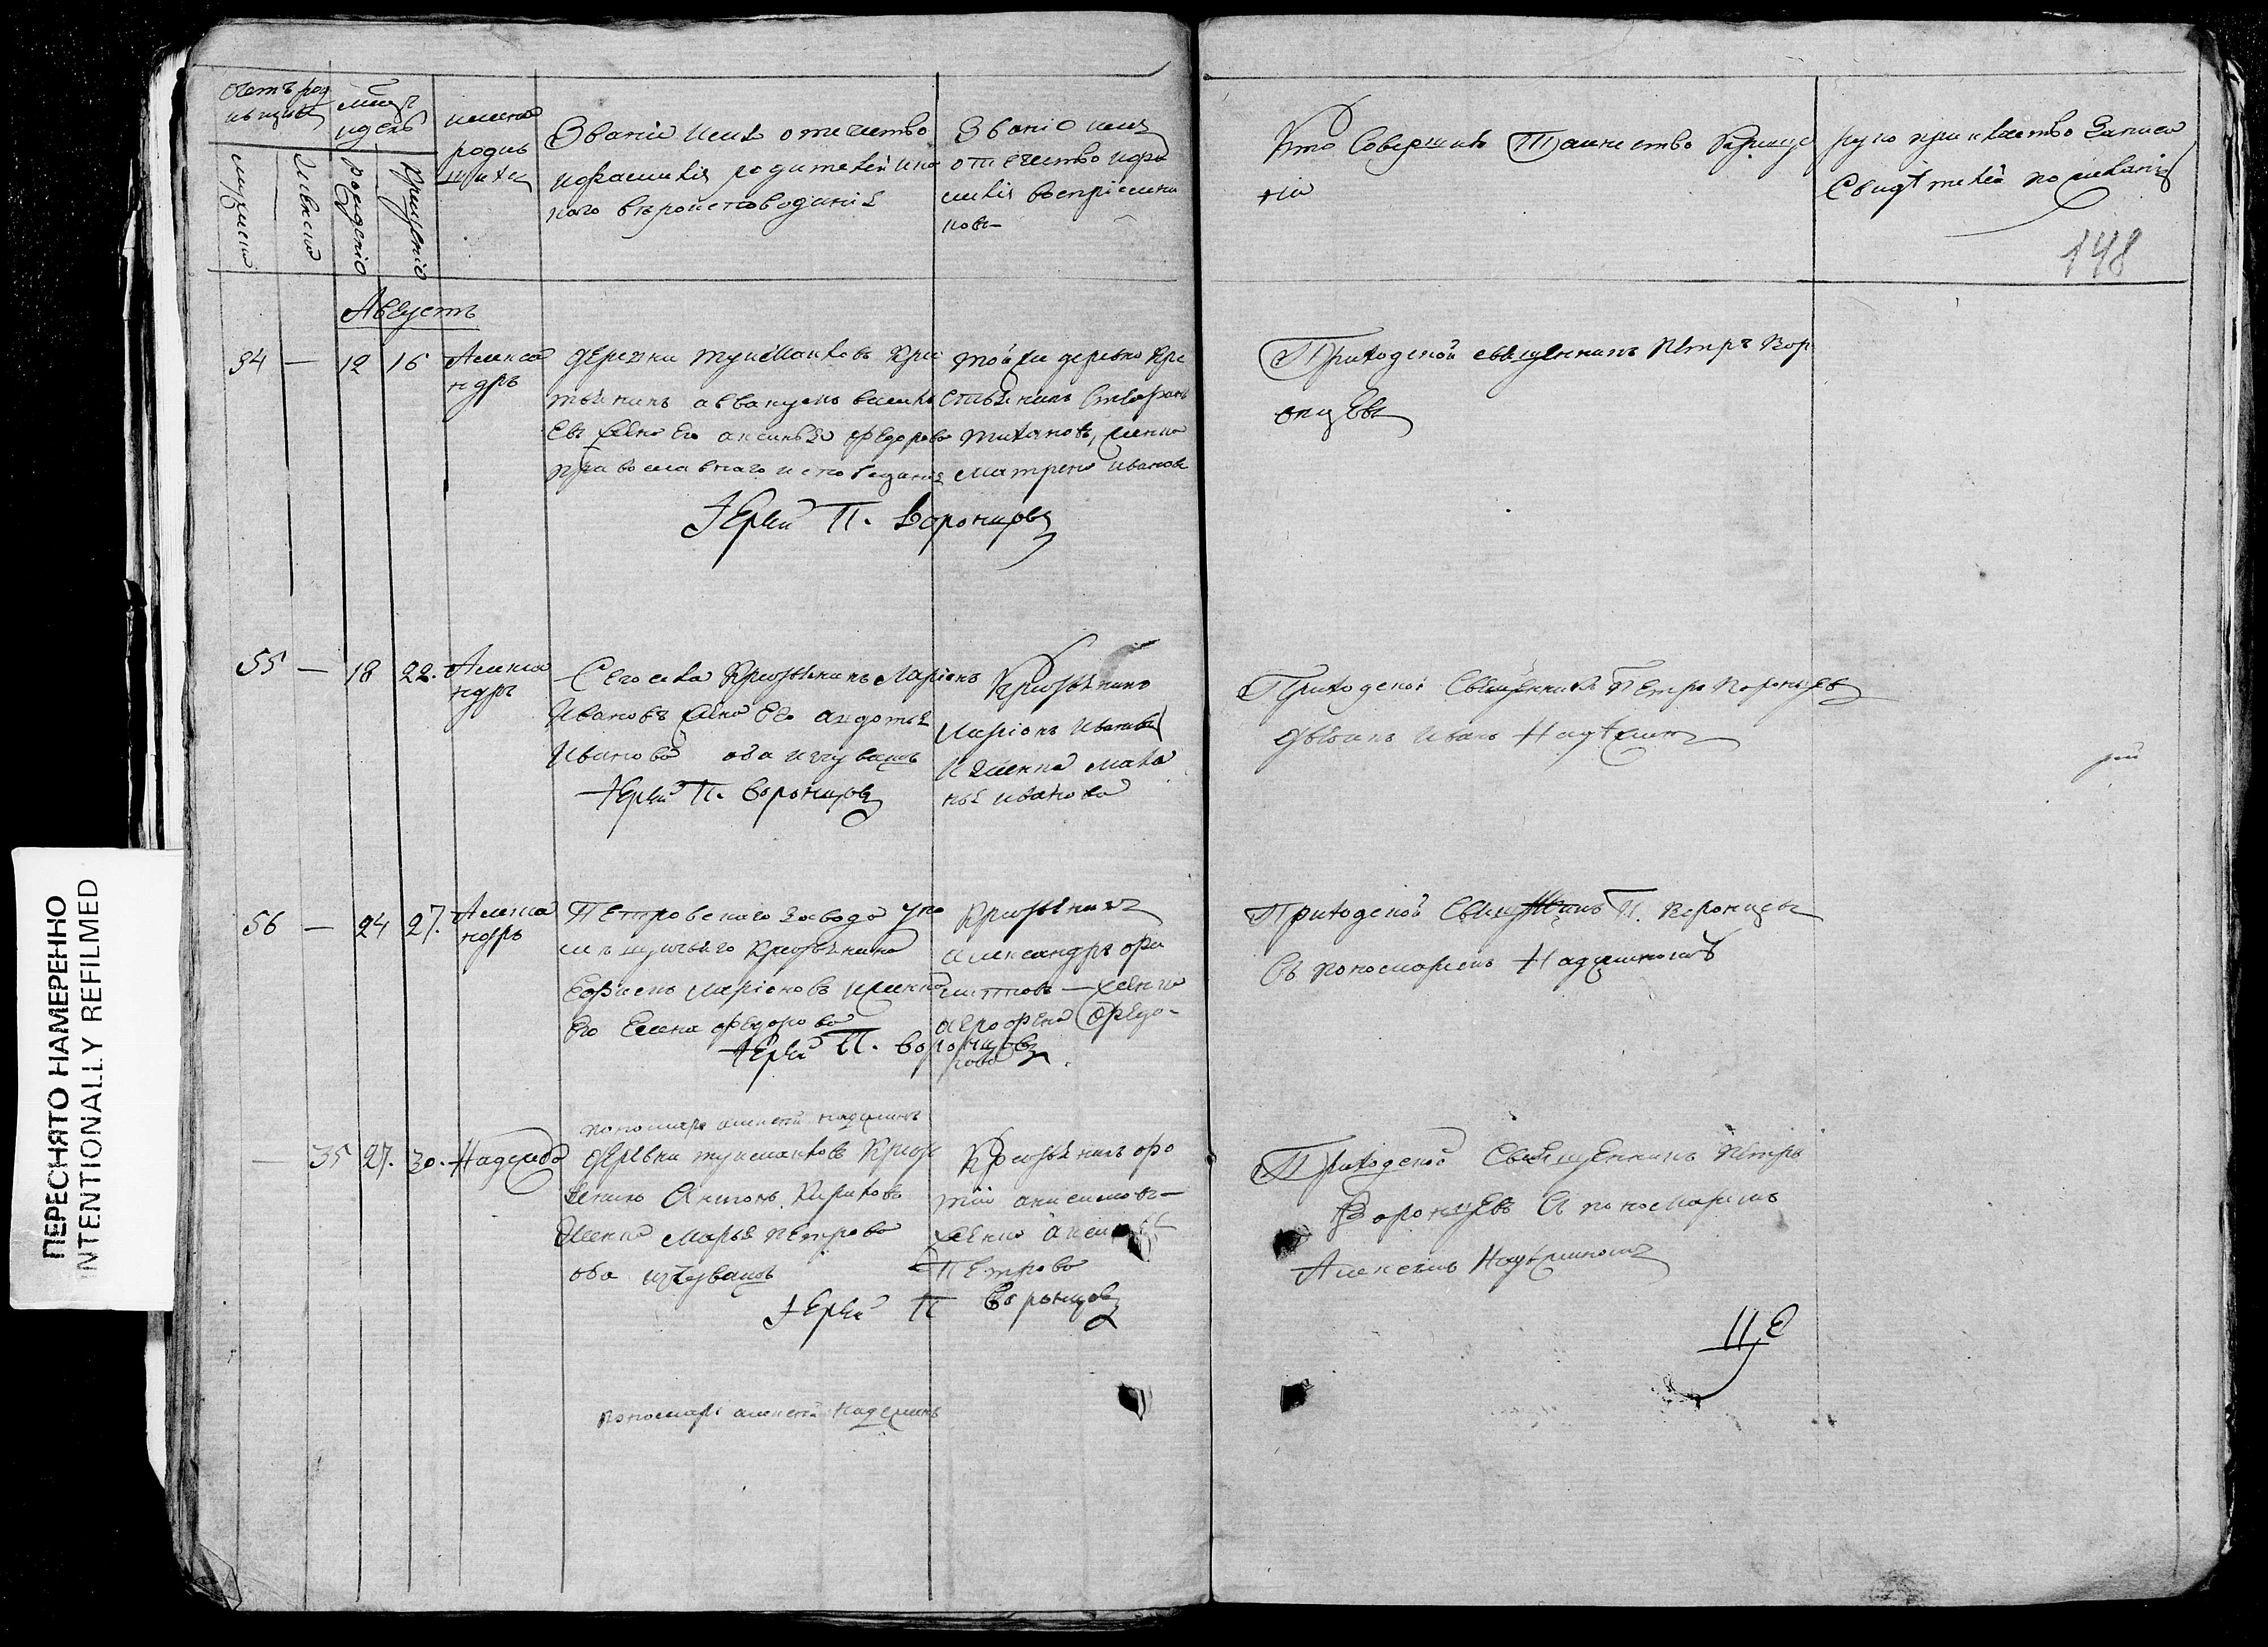 Счетъ род
ившихся
Мсцъ
и день
имена
родив
шихся
Званіе имя отечество
и фамилія родителей и ка
кого вѣроисповеданія
Званіе имя
отечество и фа
милія воспріемни
ковъ
Кто Совершилъ Таинство Креще
нія
рукоприкладство Записи
Свидѣтелей по желанію
мужеска
женска
рожденіе
крещеніе
148
Августъ
54 — 12 16 Алекса
ндръ
деревни Крес
тьянинъ аввакумъ василь
евъ жена его аксинья федорова
православнаго исповеданія
той же деревни Кре
стьянинъ Стефанъ
тихановъ, женка
матрена иванова
Іерей П. Воронцовъ
Приходской священникъ Петръ Вор
онцевъ
55 — 18 22. Алекса
ндръ
Сего села Крестьянинъ Ларіонъ
Ивановъ жена Его авдотья
Иванова оба изчувашъ
Іерей П. Воронцовъ
Крестьянинъ
Ларіонъ Ивановъ
и женка мала
нья иванова
Приходской Священникъ Петръ Воронцевъ
дьячекъ Иванъ Надеждинъ
56 — 24 27. Алекса
ндръ
Петровскаго завода
Крестьянина
Ефремъ Ларіоновъ и женка
Его Елена федорова
Іерей П. Воронцовъ
Крестьянинъ
александръ фи
липповъ — женка
агрофена Федо-
рова
Приходской Священникъ П. Воронцевъ
Съ пономаремъ Надеждинымъ
пономарь алексей надеждинъ
— 35 27. 30. Надежда
деревни Кресть
янинъ Антонъ Кириловъ
Женка Марья Петрова
оба изчувашъ
Крестьянинъ фо
тій анисимовъ —
женка
Петрова
Іерей П Воронцовъ
Приходской Священникъ Петръ
Воронцевъ С пономаремъ
Алексеемъ Надеждинымъ
пономарь алексей Надеждинъ
ПЕРЕСНЯТО НАМЕРЕННО
INTENTIONALLY REFILMED